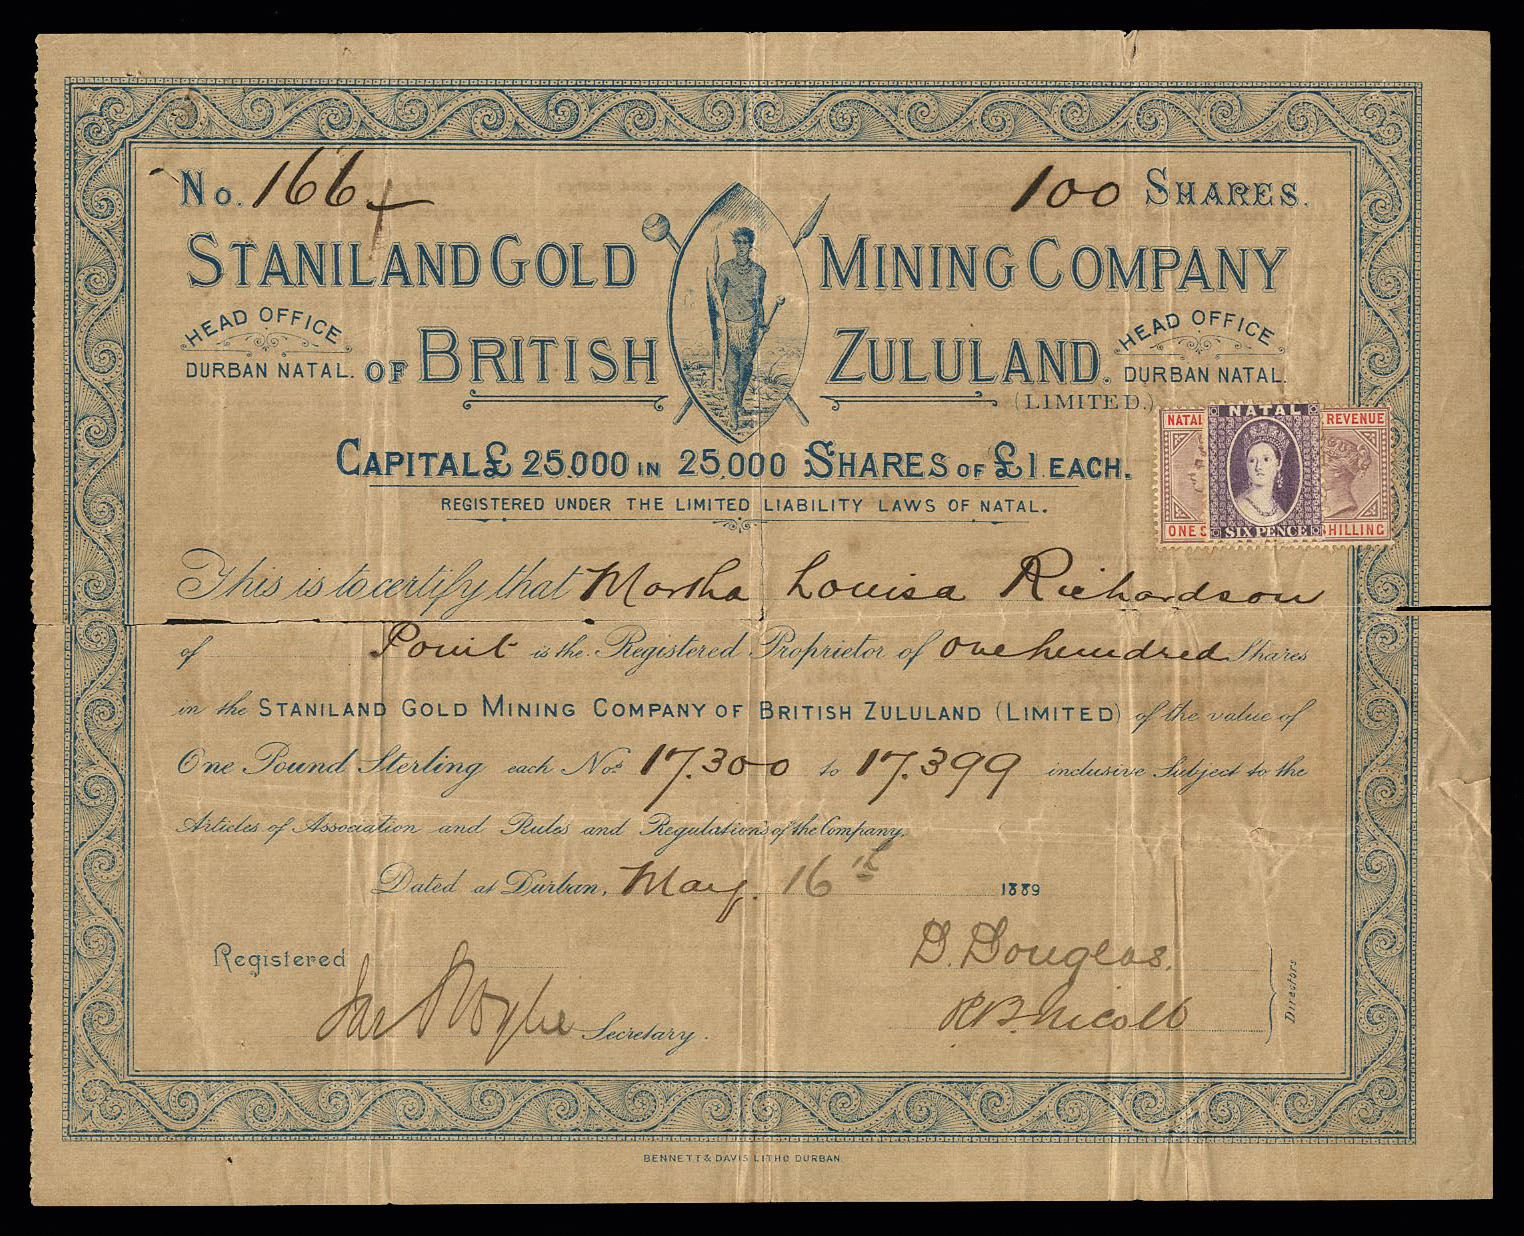 No. 166
100 SHARES.
STANILAND GOLD MINING COMPANY
HEAD OFFICE
DURBAN NATAL.
OF BRITISH ZULULAND.
(LIMITED.)
HEAD OFFICE
DURBAN NATAL.
CAPITAL £ 25.000 IN 25,000 SHARES OF £1 EACH.
REGISTERED UNDER THE LIMITED LIABILITY LAWS OF NATAL.
NATAL REVENUE
NATAL
ONE SHILLING
SIX PENCE
This is to certify that Martha Louisa Richardson
of Point is the Registered Proprietor of one hundred Shares
in the STANILAND GOLD MINING COMPANY OF BRITISH ZULULAND (LIMITED) of the value of
One Pound Sterling each Nos 17.300 to 17.399 inclusive Subject to the
Articles of Association and Rules and Regulations of the Company.
Dated at Durban, May. 16th 1889
Registered
Secretary.
D. Douglas.
R.B. Nicoll
Directors
BENNETT & DAVIS LITHO DURBAN.